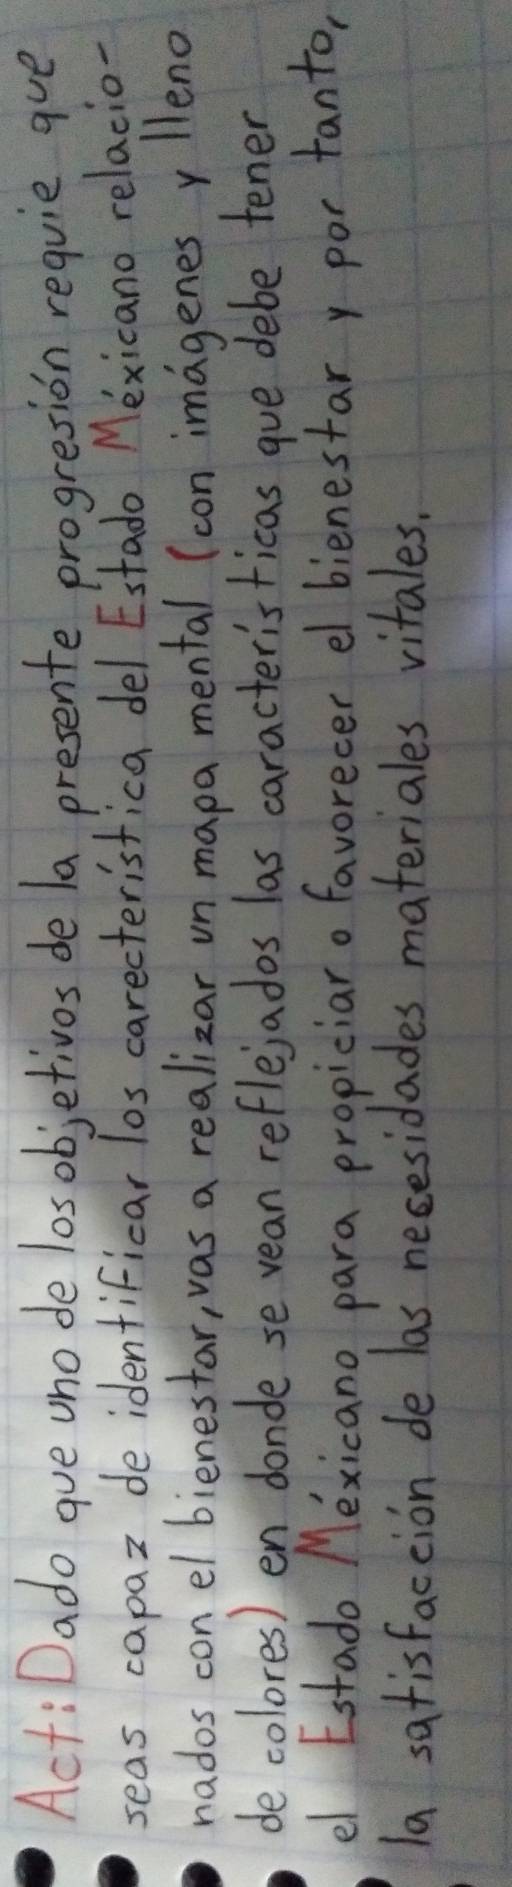 Act: Dado que uno de los objetivos de la presente progresión requie que
seas capaz de identificar los carecterística del Estado Méxicano relacio-
nados con el bienestar, vas a realizar un mapa mental (con imágenes y lleno
de colores) en donde se vean reflejados las características que debe tener
el Estado Méxicano para propiciar o favorecer el bienestar y por tanto,
la satisfacción de las necesidades materiales vitales.